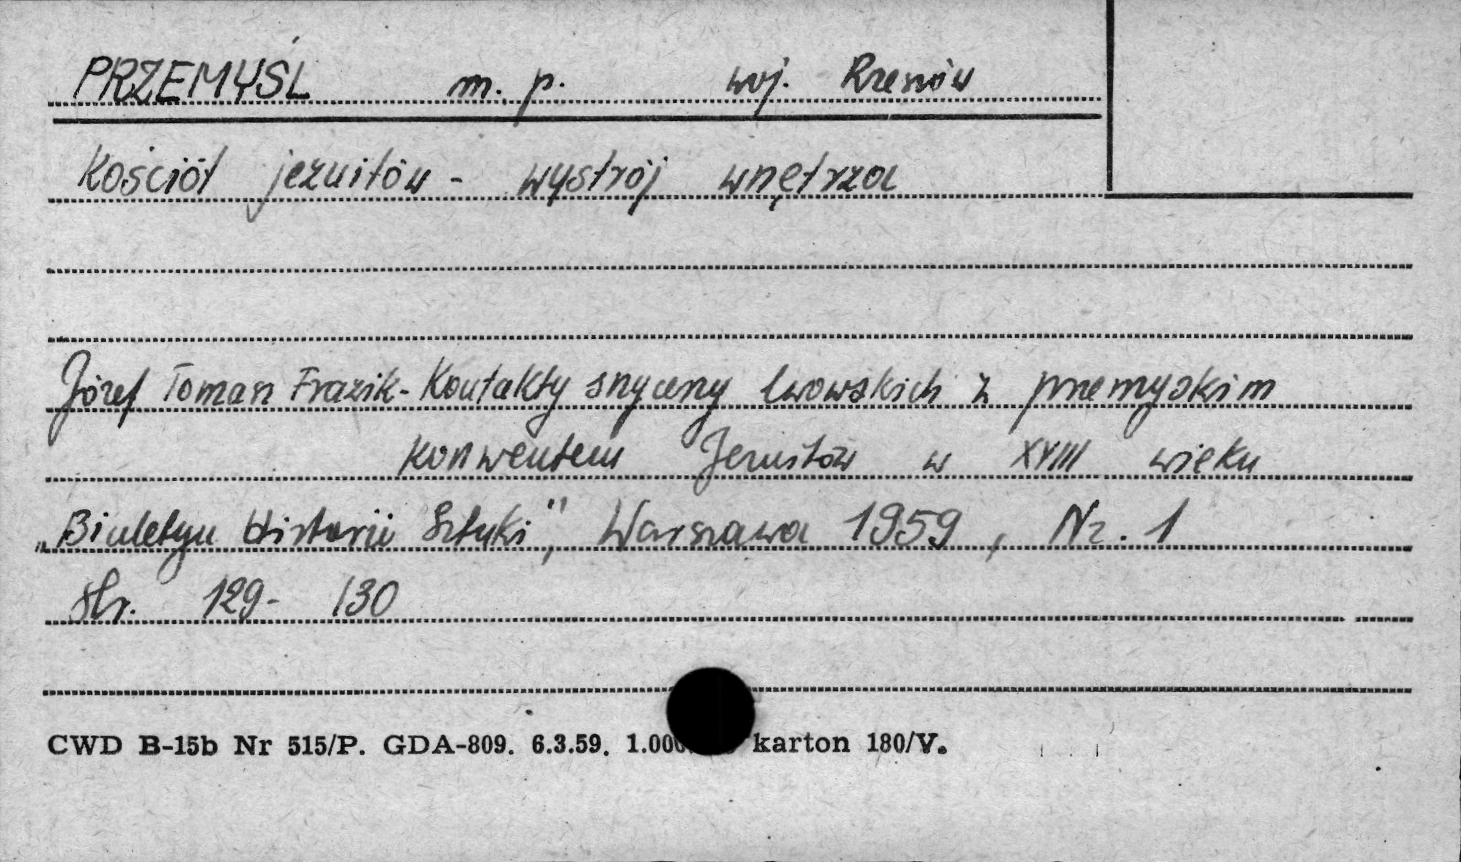 PRZEMYŚL m. p. woj. Rzeszów
Kościół jezuitów - wystrój wnętrza
Józef Tomasz Frazik - Kontakty snycerzy lwowskich z przemyskim
konwentem Jezuitów w XVIII wieku
„Biuletyn Historii Sztuki", Warszawa 1959, Nr. 1
str. 129-130
CWD B-15b Nr 515/P. GDA-809. 6.3.59. karton 180/V.